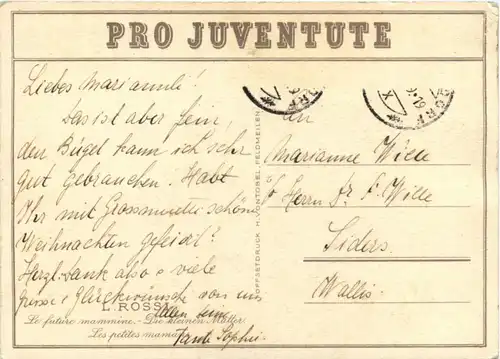 PRO JUVENTUTE
Liebes Mariannli!
Das ist aber fein,
den Bügel kann ich sehr
gut gebrauchen. Habt
Ihr mit Grossmuetti schöne
Weihnachten gefeiert?
Herzl. Dank also & viele
Grüsse & Glückwünsche von uns
allen
Tante Sophie.
L. ROSSI
Le future mammine. - Die kleinen Mütter.
Les petites mamans
OFFSETDRUCK H. VONTOBEL, FELDMEILEN
An
Marianne Wille
Herrn Dr. F. Wille
Siders
Wallis.